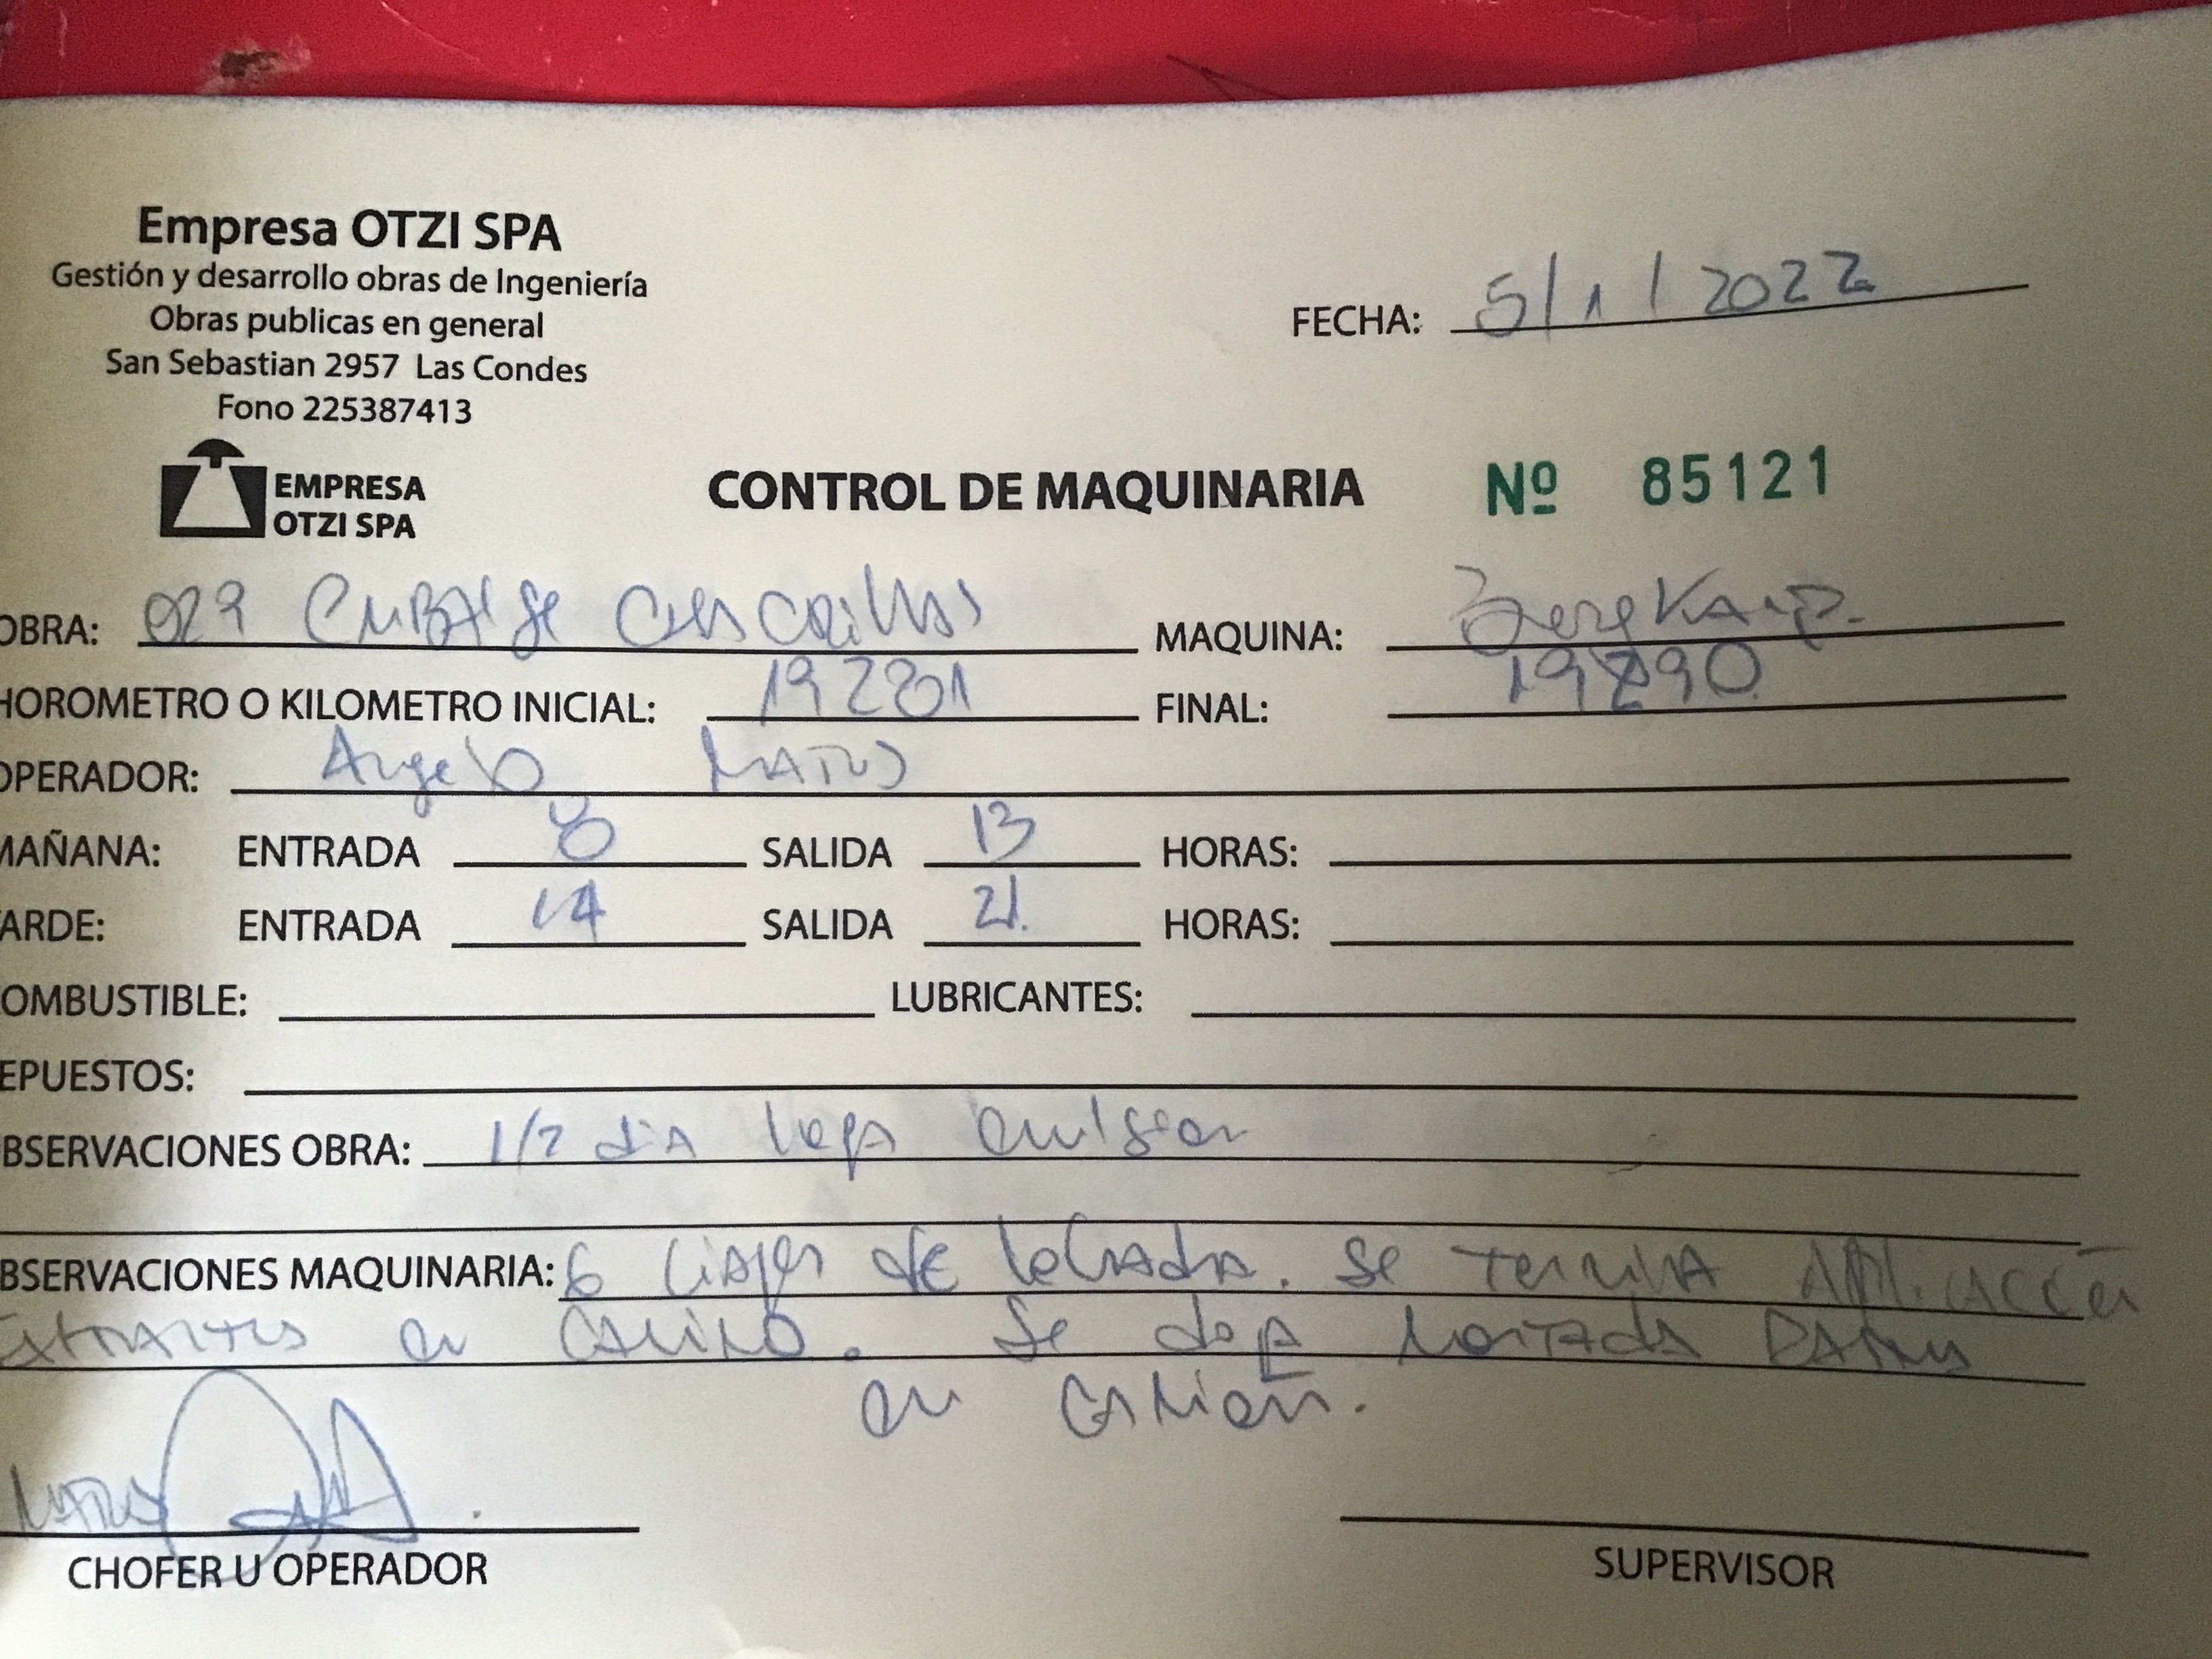 Empresa OTZI SPA
Gestión y desarrollo obras de Ingeniería
Obras publicas en general
San Sebastian 2957 Las Condes
Fono 225387413
FECHA: 5/1/2022
EMPRESA
OTZI SPA
CONTROL DE MAQUINARIA Nº 85121
OBRA: MAQUINA:
HOROMETRO O KILOMETRO INICIAL: 19281 FINAL: 19290
OPERADOR: Angelo
MAÑANA: ENTRADA 8 SALIDA 13 HORAS:
TARDE: ENTRADA 14 SALIDA 21. HORAS:
OMBUSTIBLE: LUBRICANTES:
EPUESTOS:
BSERVACIONES OBRA: 1/2 dia llega emulsion
BSERVACIONES MAQUINARIA: de lechada. Se termina
en camino. Se deja
en camion.
CHOFER U OPERADOR SUPERVISOR